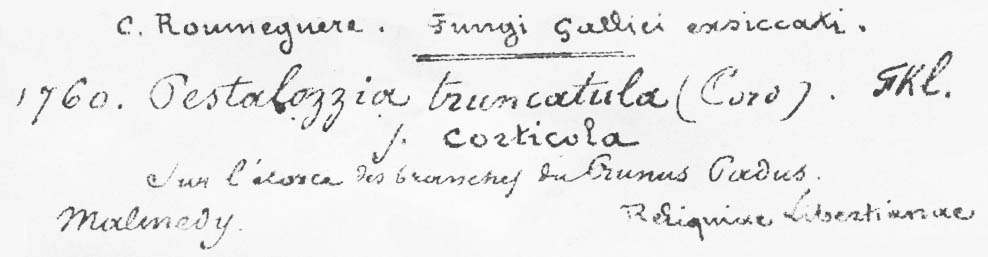 C. Roumeguere. Fungi Gallici exsiccati.
1760. Pestalozzia truncatula (Cord). FKl.
f. corticola
Sur l'écorce des branches du Prunus Padus.
Malmedy. Reliquiae Libertianae